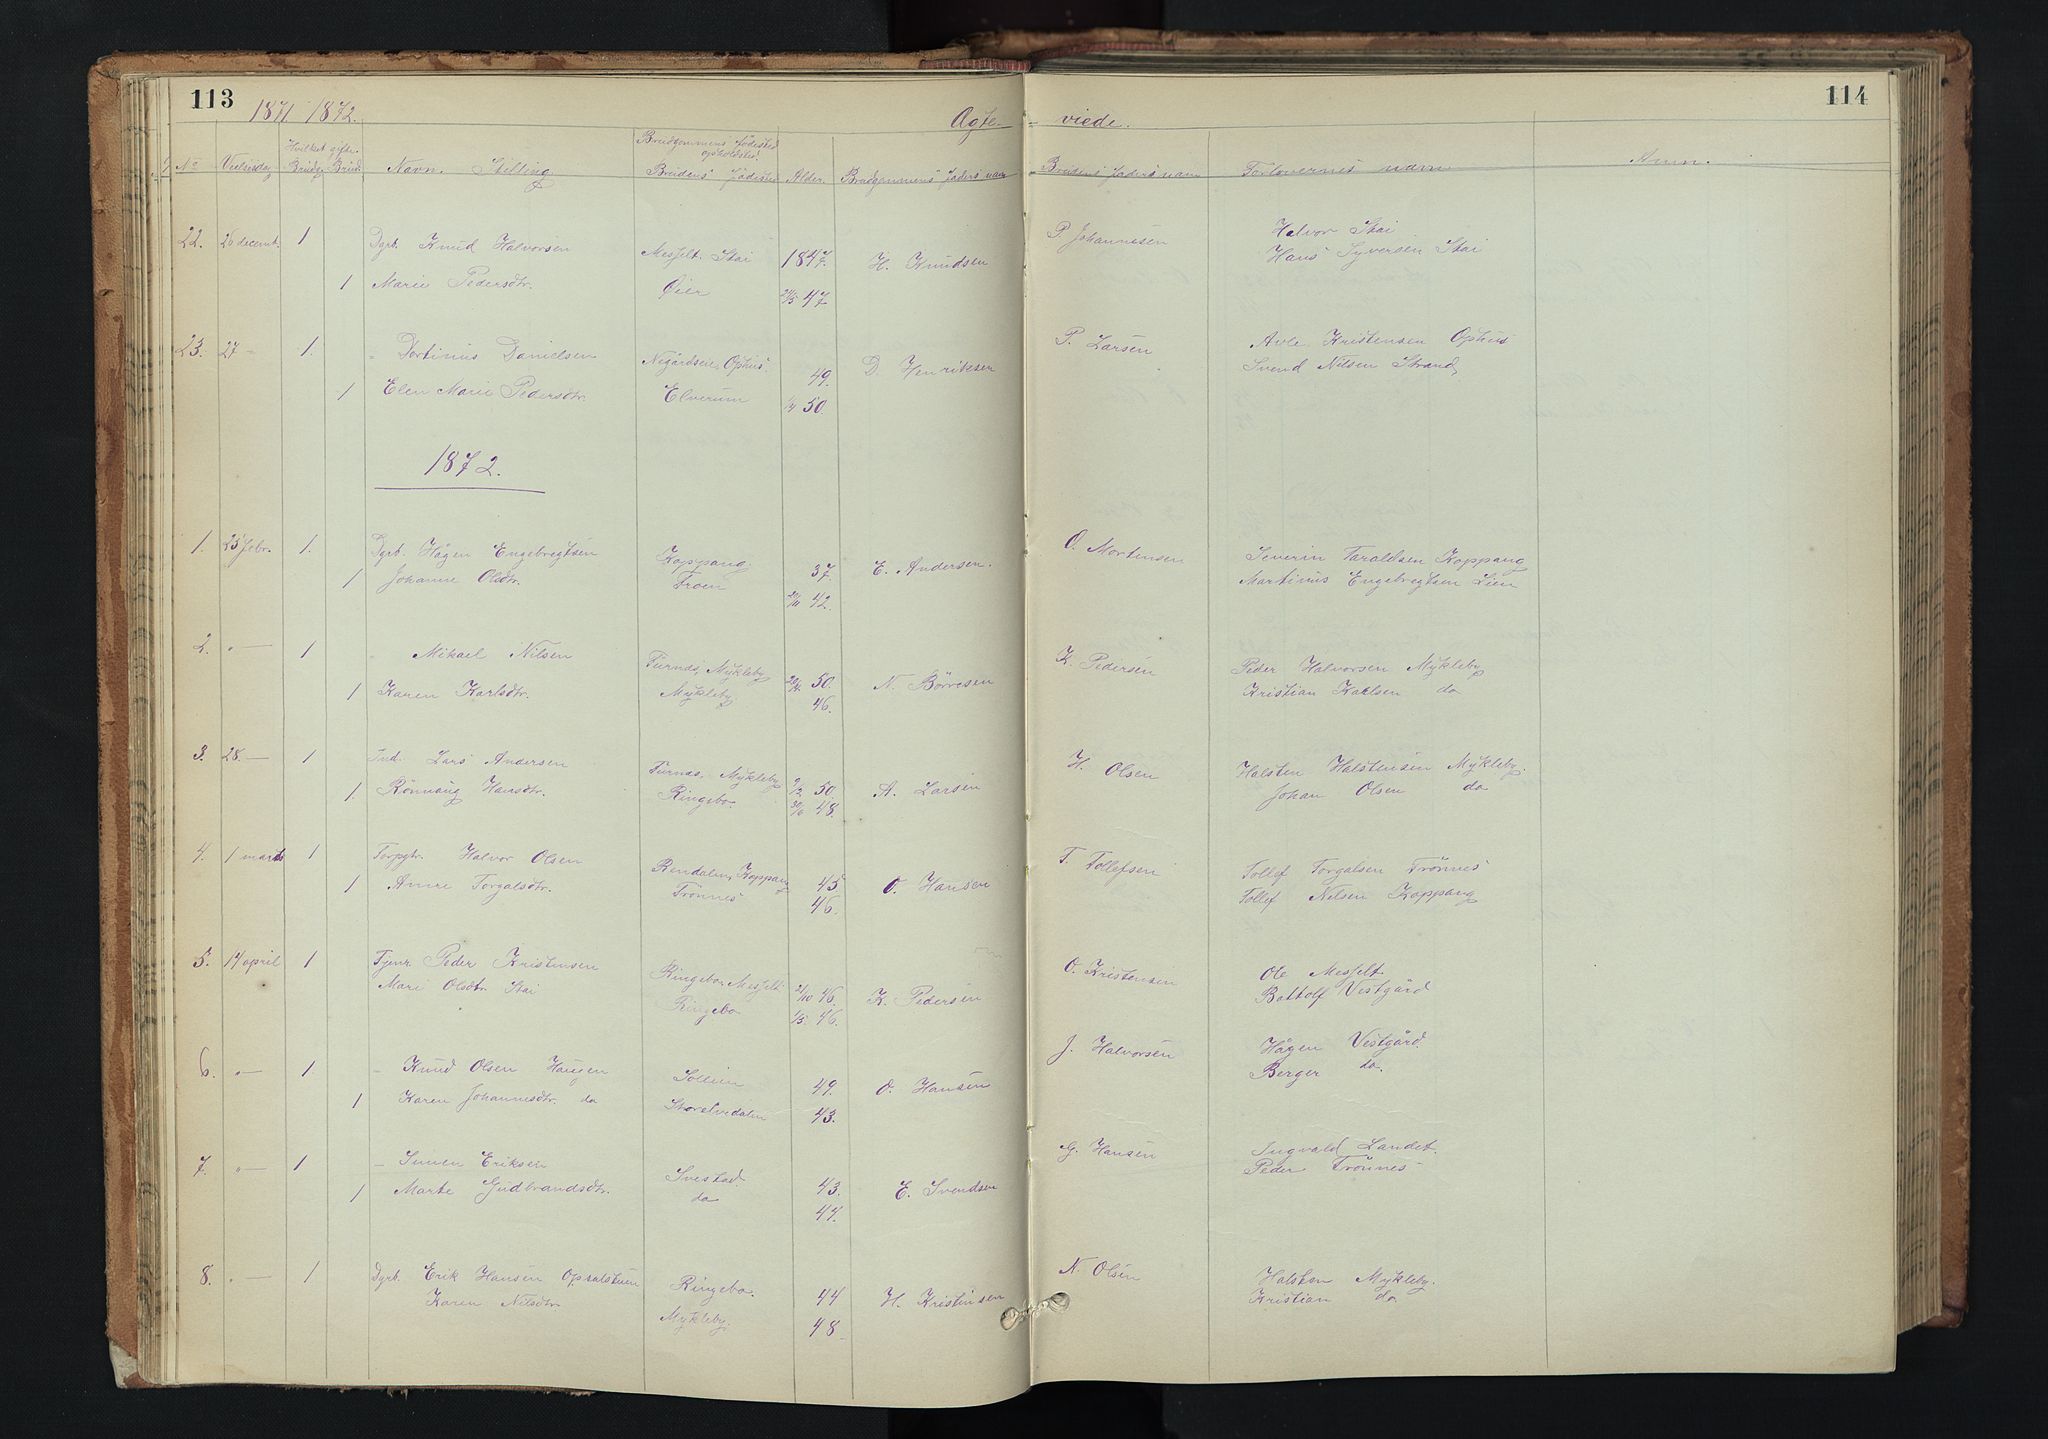 113
1871 1872.
Ægte
No Vielsesdag Hvilket gifte. Brudg Brud Navn. Stilling Brudgommens Fødested opholdsted. Brudens Fødested Alder. Brudgommens faders navn
22. 26 decemb. 1 Dgrb. Knud Halvorsen Messelt. Stai 1847. H. Knudsen
1 Marie Pedersdtr. Øier 24/5 47
23. 27 - 1. - Dortinus Danielsen Ophus. 49. D. Henriksen
1 Elen Marie Pedersdtr. Elverum 50.
1872.
1. 25 febr. 1. Dgrb. Hågen Engebregtsen Koppang. 37. E. Andersen.
1 Johanne Olsdtr. Froen 42.
2. "— 1 - Mikael Nilsen Furnæs, Mykleby 50. N. Börresen
1 Karen Karlsdtr. Mykleby 46.
3. 28.— 1 Ind. Lars Andersen Furnæs, Mykleby 9/2 50 A. Larsen
1. Rönnaug Hansdtr. Ringebo. 30/6 48.
4. 1 marts 1 Halvor Olsen Rendalen, Koppang 45. O. Hansen
1 Anne Torgalsdtr. Trönnes 46.
5. 14 april 1 Tjenr. Peder Kristensen Ringebo, Messelt. 21/10 46. K. Pedersen
Mari Olsdtr. Stai Ringebo 1/5 46.
6. "— 1. - Knud Olsen Haugen Sollien 49. O. Hansen
1 Karen Johannesdtr. do Storelvedalen 43.
7. "— 1 - Simen Eriksen 43. E. Svendsen
1 Marte Gudbrandsdtr. do 47.
8. "— 1 Dgrb. Erik Hansen Opsalstuen Ringebo. 44 H. Kristensen
Karen Nilsdtr. Mykleby. 48
114
viede.
Brudens faders navn Forlovernes navn Anm.
P. Johannesen Halvor Stai
Hans Syversen Stai
P. Larsen Kristensen Ophus
Svend Nilsen Strand,
O. Mortensen Severin Taraldsen Koppang
Martinus Engebregtsen Lien
K. Pedersen Peder Halvorsen Mykleby
Kristian Karlsen do
H. Olsen Halsten Halstensen Mykleby.
Johan Olsen do
T. Tollefsen Tollef Torgalsen Trönnes
Tollef Nilsen Koppang
O. Kristensen Ole Messelt
Bottolf Vestgård
J. Halvorsen Hågen Vestgård.
Berger do.
G. Hansen Ingvald Landet.
Peder Trönnes
N. Olsen Halsten Mykleby.
Kristian do